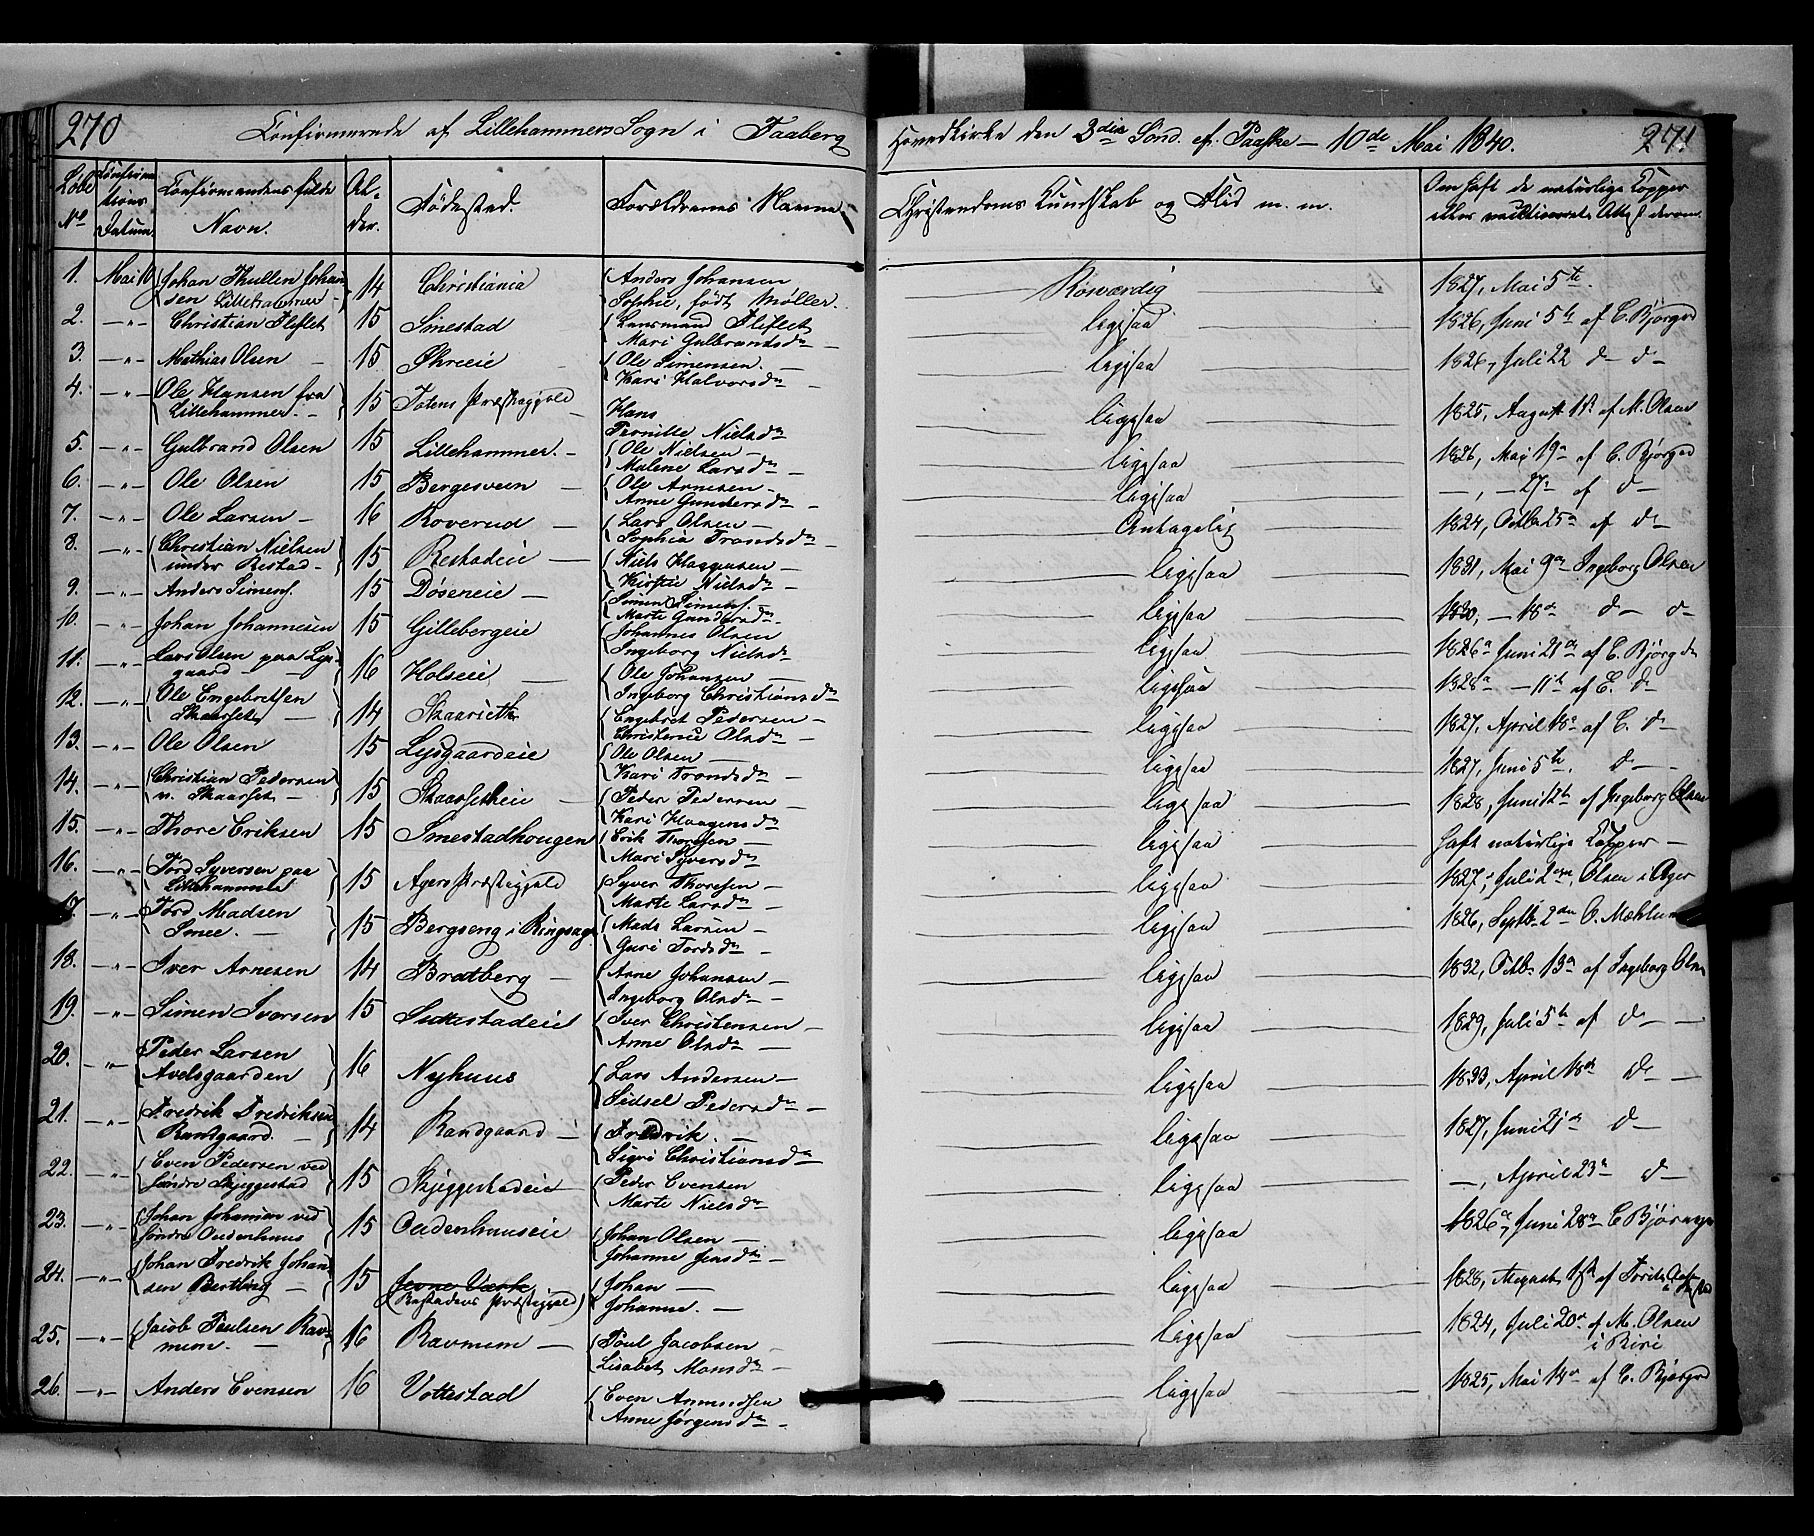 270
Confirmerede af Lillehammers Sogn i Faaberg
Hovedkirke den 3die Sønd. ef. Paaske — 10de Mai 1840.
271
Løbe No
Confirmations Datum
Confirmandens fulde Navn.
Alder.
Fødested.
Forældrenes Navne
Christendoms Kundskab og Flid m. m.
Om haft de naturlige Kopper eller vaktioneret, Attest derom.
1. Mai 10 Johan Thullen Johan 14 Christiania Anders Johansen Roværdig 1827, Mai 5te
sen Lillehammer Sophie, født Møller.
2. —"— Christian Fliflet 15 Smestad Lensmand Fliflet ligesaa 1826, Juni 5te af C. Bjørged
Mari Gulbrandsdn
3. —"— Mathias Olsen 15 Øhreeie Ole Simensen. ligesaa 1826, Juli 22 d— d—
Kari Halvorsdn
4. —"— Ole Hansen fra 15 Totens Præstegjeld Hans ligesaa 1825, August af M. Olsen
Lillehammer. Pernille Nielsdn
5. —"— Gulbrand Olsen 15 Lillehammer. Ole Nielsen ligesaa 1826, Mai 19de af C. Bjørged
Malene Larsdn
6. —"— Ole Olsen 15 Bergesveen Ole Arnesen ligesaa —, — 27de af d—
Anne Gundersdn
7. —"— Ole Larsen 16 Roverud Lars Olsen Antagelig 1824, Octb. 25de af d—
Sophia Trondsdn
8. —"— Christian Nielsen 15 Restadeie Niels Haagensen ligesaa 1831, Mai 9de Ingeborg Olsen
under Restad Kirstie Nielsdn
9. —"— Anders Simens. 15 Døseneie Simen Simens. ligesaa 1830, — 18de d— d—
Marte Gundersdn
10. —"— Johan Johannesen 15 Gillebergeie Johannes Olsen ligesaa 1826 Juni 21de af C. Bjørged
Ingeborg Nielsdn
11. —"— Lars Olsen paa Lys 16 Holseie Ole Johansen ligesaa 1828 — 11te af C. d—
gaard Ingeborg Christiansdn
12. —"— Ole Engebretsen 14 Skaarseth Engebret Pedersen ligesaa 1827, April 18de af C. d—
Skaarset Christense Olsdn
13. —"— Ole Olsen 15 Lysgaardeie Ole Olsen ligesaa 1827, Juni 5te. d—
Kari Trondsdn
14. —"— Christian Pedersen 15 Skaarsetheie Peder Pedersen ligesaa 1828, Juni 12te af Ingeborg Olsen
n. Skaarset Kari Haagensdn
15. —"— Thore Eriksen 15 Smestadhougen Erik Thoresen ligesaa haft naturlige Kopper —
Mari Syversdn
16. —"— Tord Syversen paa 15 Agers Præstegjeld Syver Thoresen ligesaa 1827, Juli 2den, Olsen i Ager
Lillehammer Marte Larsdn
17. —"— Tord Madsen 15 Bergseng i Ringsager Mads Larsen ligesaa 1826, Septb. 2den O. Mæhlum
Smee. Guri Tordsdn
18. —"— Iver Arnesen 14 Bratberg Arne Johansen ligesaa 1832, Octb. 13de af Ingeborg Olsen
Ingeborg Olsdn
19. —"— Simen Iversen 15 Suttestadeie Iver Christensen ligesaa 1829, Juli 5te af d—
Anne Olsdn
20. —"— Peder Larsen 16 Nyhuus Lars Andersen ligesaa 1833, April 18de d—
Avelsgaarden Sidsel Pedersdn
21. —"— Fredrik Fredriksen 14 Randgaard Fredrik. ligesaa 1827, Juni 21de d—
Randgaard. Sigri Christiansdn
22. —"— Even Pedersen ved 15 Skjeggestadeie Peder Evensen ligesaa —, April 23de d—
søndre Skjeggestad Marte Nielsdn
23. —"— Johan Johansen ved 15 Oudenhuuseie Johan Olsen ligesaa 1826, Juni 28de C Bjørnges
søndre Oudenhuus Johanne Jensdn
24. —"— Johan Fredrik Johan 15 Jevne Værk Johan — ligesaa 1828, August af
sen Bertling (Restadens Præstegjeld) Johanne. —
25. —"— Jacob Poulsen Rav 16 Ravnum Poul Jacobsen ligesaa 1824, Juli 20de af M. Olsen
mum. Lisabet Monsdn i Biri
26. —"— Anders Evensen 16 Vottestad Even Amundsen ligesaa 1825, Mai 14de af C. Bjørged
Anne Jørgensdn